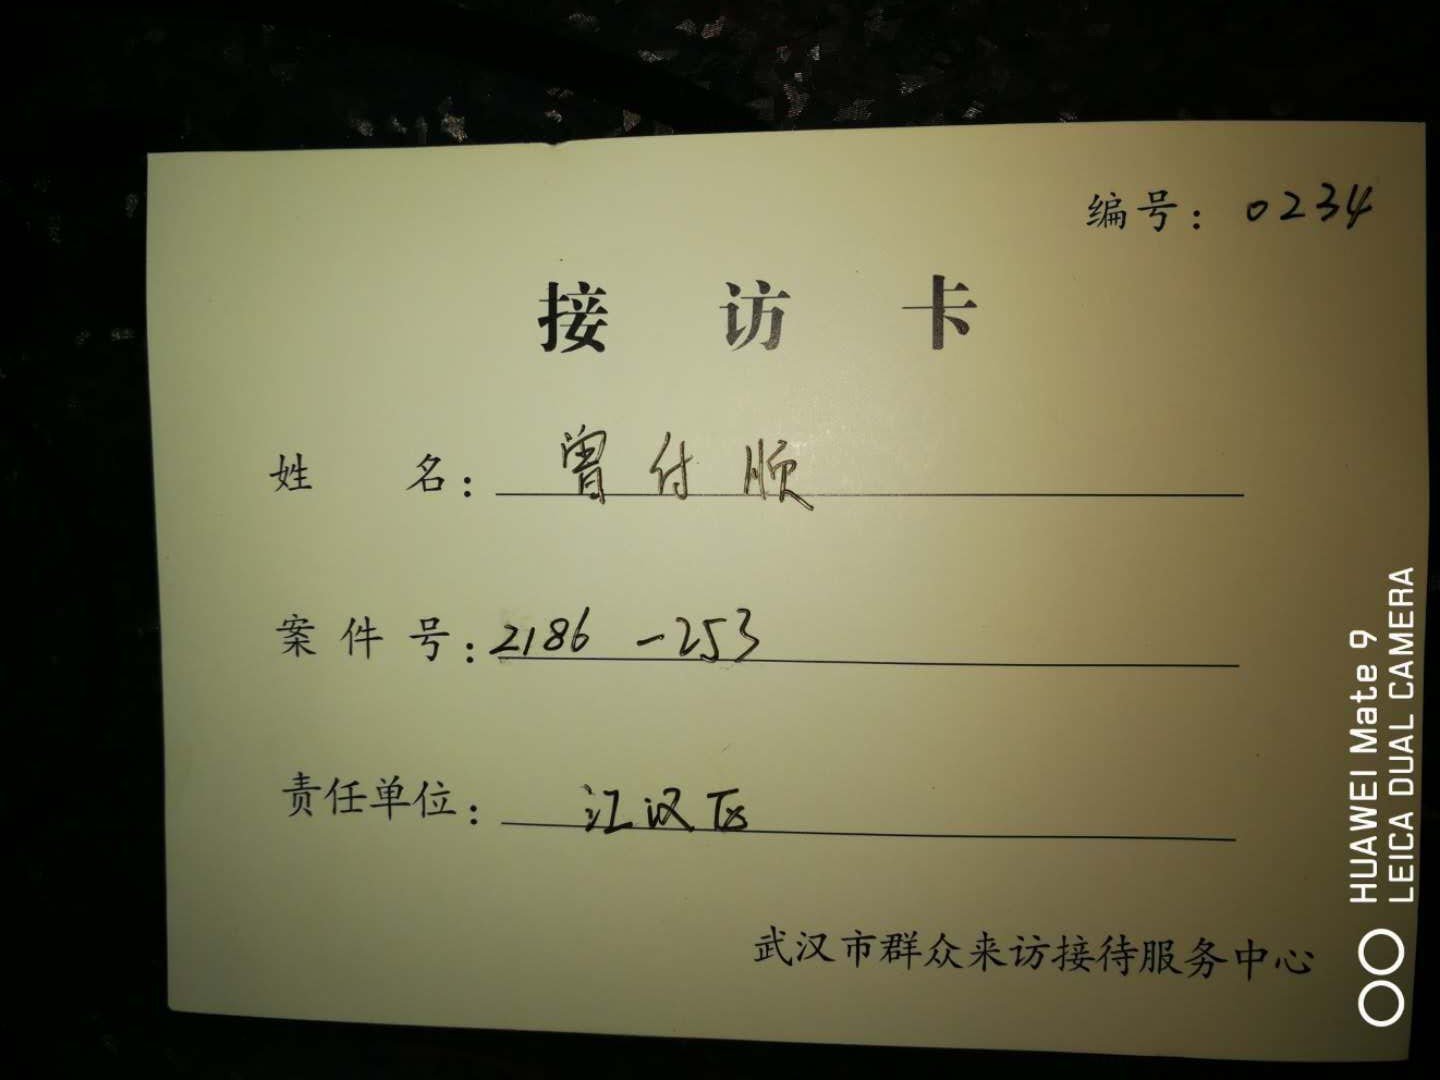 编号：0234
接访卡
姓名：曾付顺
案件号：2186-253
责任单位：江汉区
武汉市群众来访接待服务中心
HUAWEI Mate 9
LEICA DUAL CAMERA